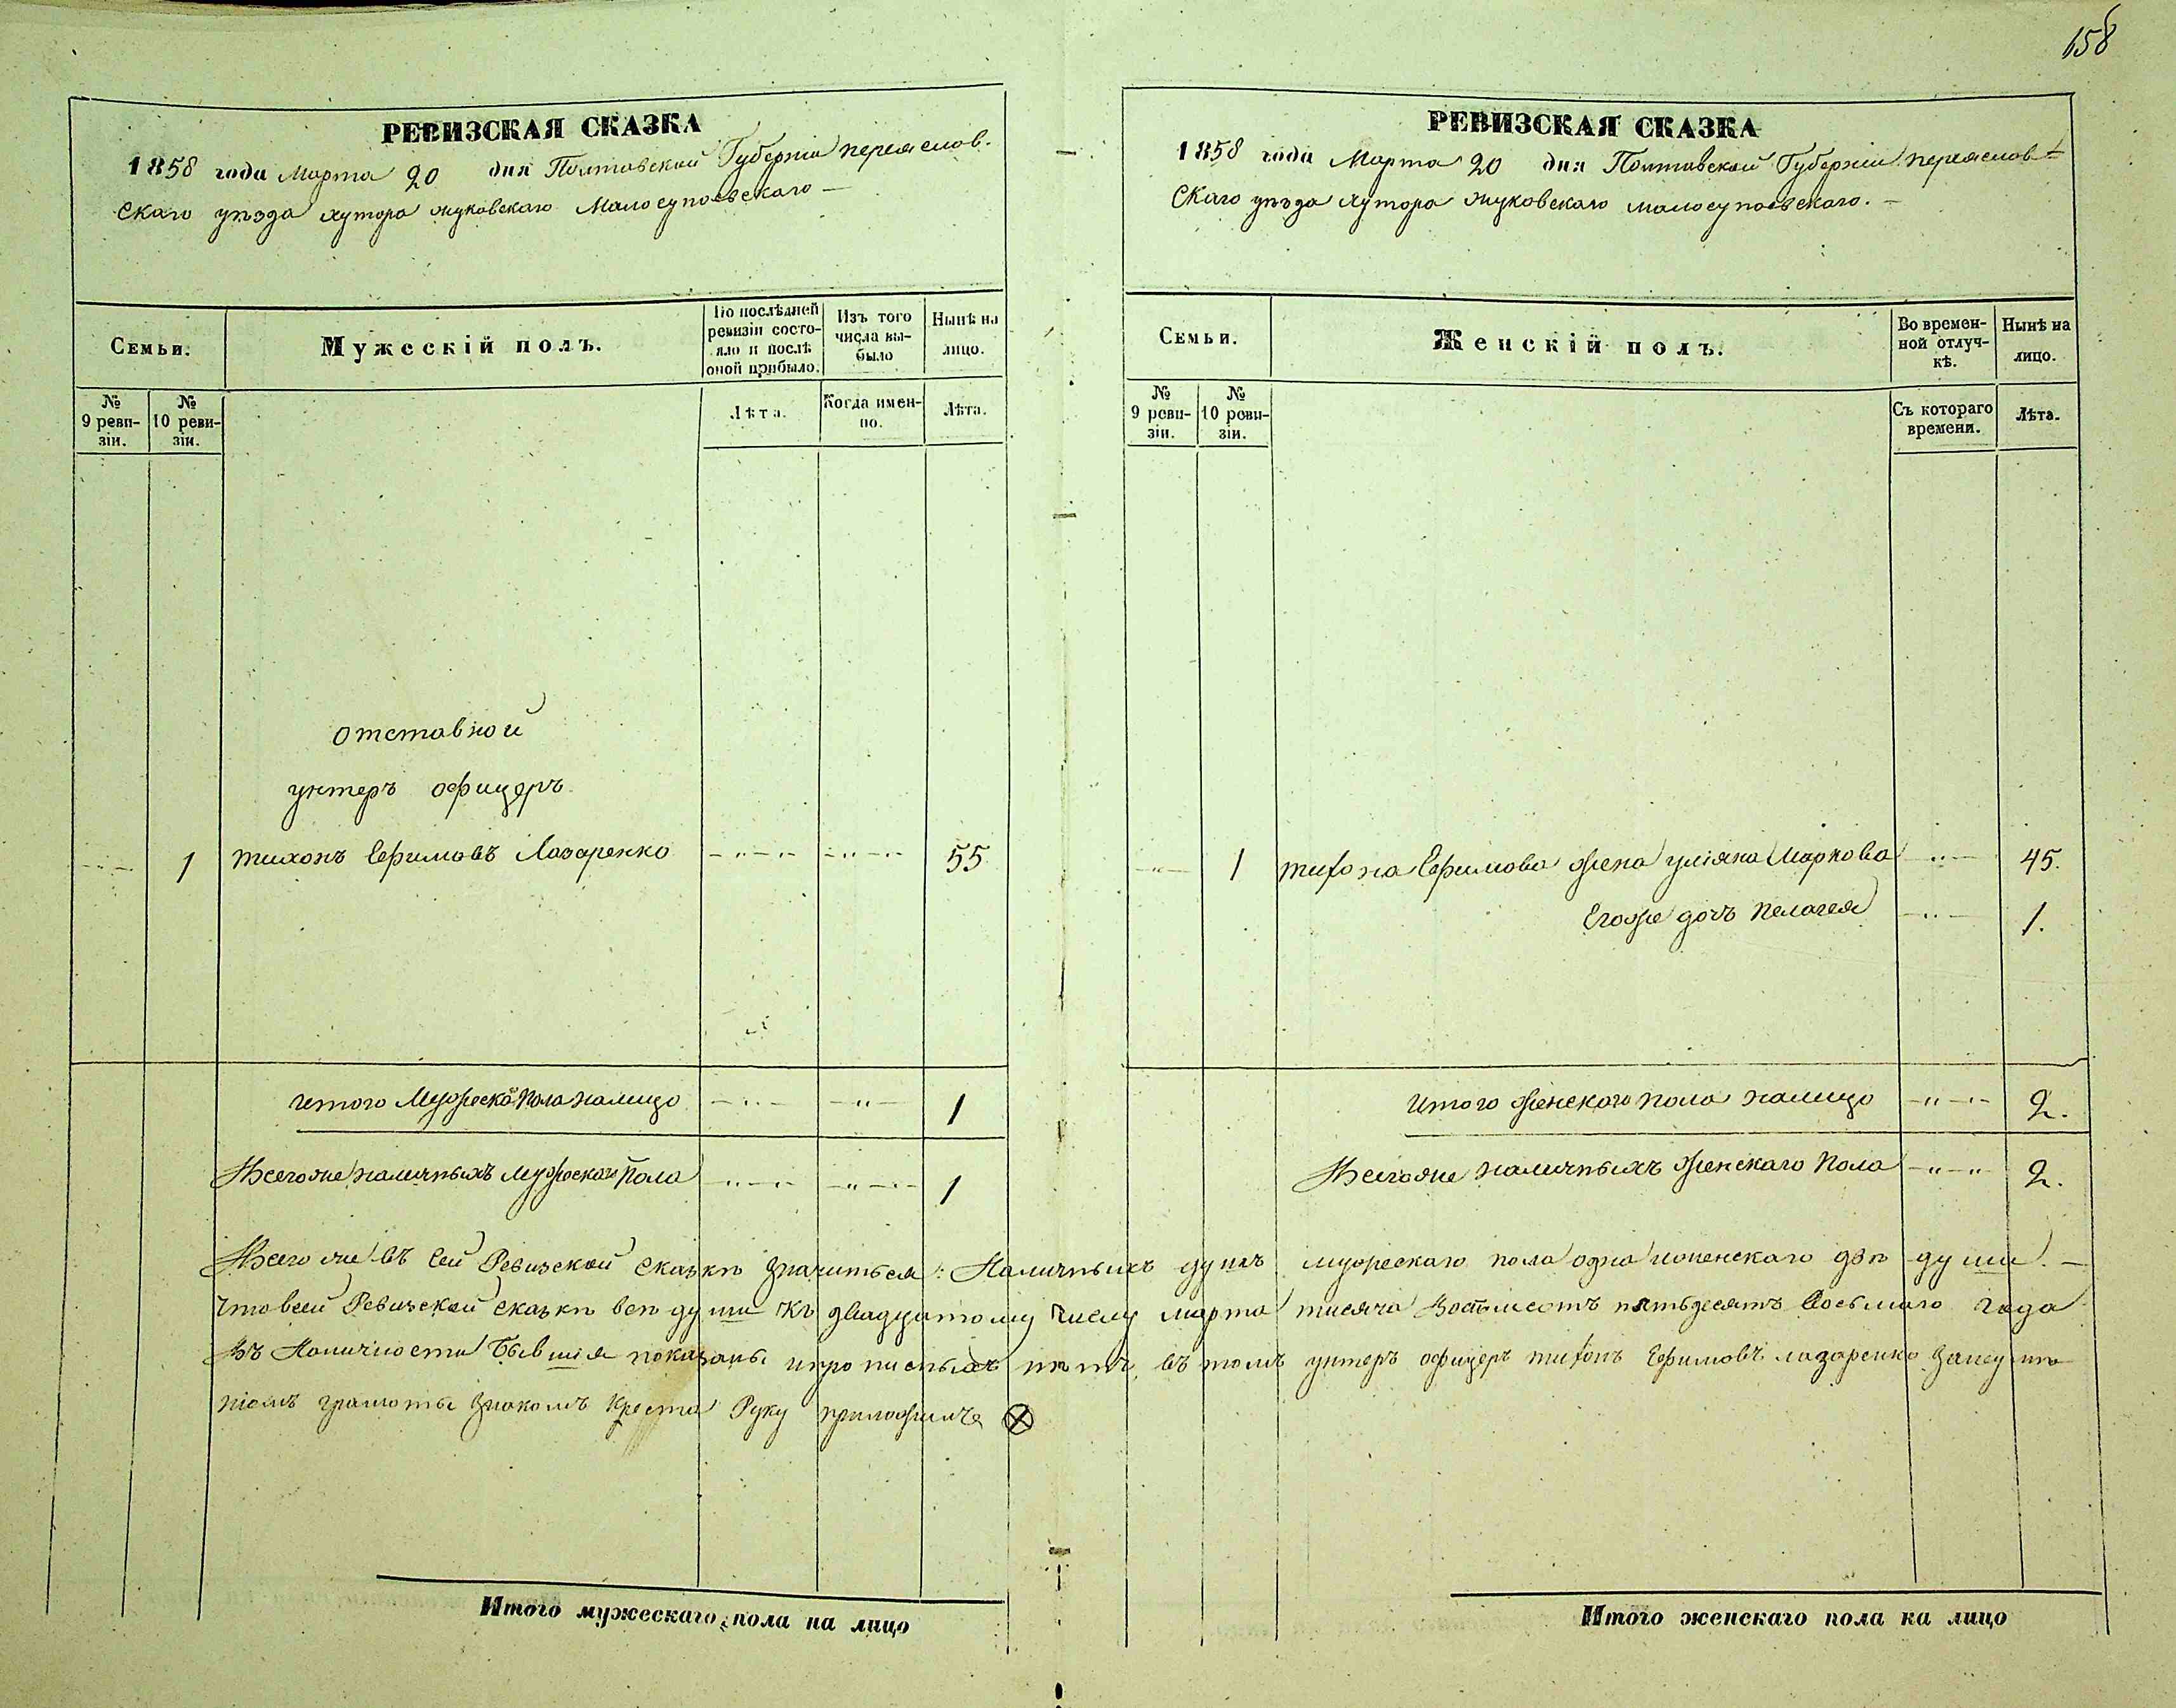 158
РЕВИЗСКАЯ СКАЗКА
1858 года Марта 20 дня Полтавской Губерніи переяслов-
скаго уѣзда хутора жуковскаго Малосупоевскаго
Семьи.
Мужескій полъ.
По послѣдней ревизіи состо-
яло и послѣ оной прибыло.
Изъ того числа вы-
было
Нынѣ на лицо.
№ 9 реви-
зіи.
№ 10 реви-
зіи.
Лѣта.
Когда имен-
но.
Лѣта.
отставной
унтеръ офицеръ
1 тихонъ Ефимовъ Лазаренко 55
итого Мужеска Пола налицо 1
Всего же наличныхъ мужеска Пола 1
РЕВИЗСКАЯ СКАЗКА
1858 года Марта 20 дня Полтавской Губерніи переяслов-
скаго уѣзда хутора жуковскаго малосупоевскаго.
Семьи.
Женскій полъ.
Во времен-
ной отлуч-
кѣ.
Нынѣ на лицо.
№ 9 реви-
зіи.
№ 10 реви-
зіи.
Съ котораго времени.
Лѣта.
1 тихона Ефимова жена уліяна Маркова 45.
Егоже дочъ пелагея 1.
итого женскаго пола налицо 2.
Всегоже наличныхъ женскаго Пола 2.
Всего же въ сей Ревизской сказкѣ значиться: Наличныхъ душъ мужескаго пола одна иженскаго двѣ души.
что всей Ревизской сказкѣ всѣ души къ двадцатому числу марта тисяча восемсотъ пятьдесятъ восьмаго года
въ Наличности бывшія показаны ипрописныхъ нѣтъ, въ томъ унтеръ офицеръ тихонъ Ефимовъ лазаренко занеумѣ
ніемъ грамоты знакомъ креста Руку приложилъ
Итого мужескаго пола на лицо
Итого женскаго пола на лицо